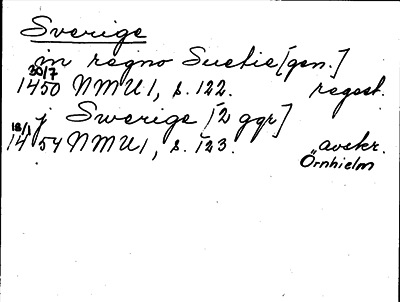 Sverige
in regno Suetie [gen.]
30/7
1450 NMU 1, s. 122. regest.
j Swerige [2 ggr]
18/1
1454 NMU 1, s. 123. avskr.
Örnhielm